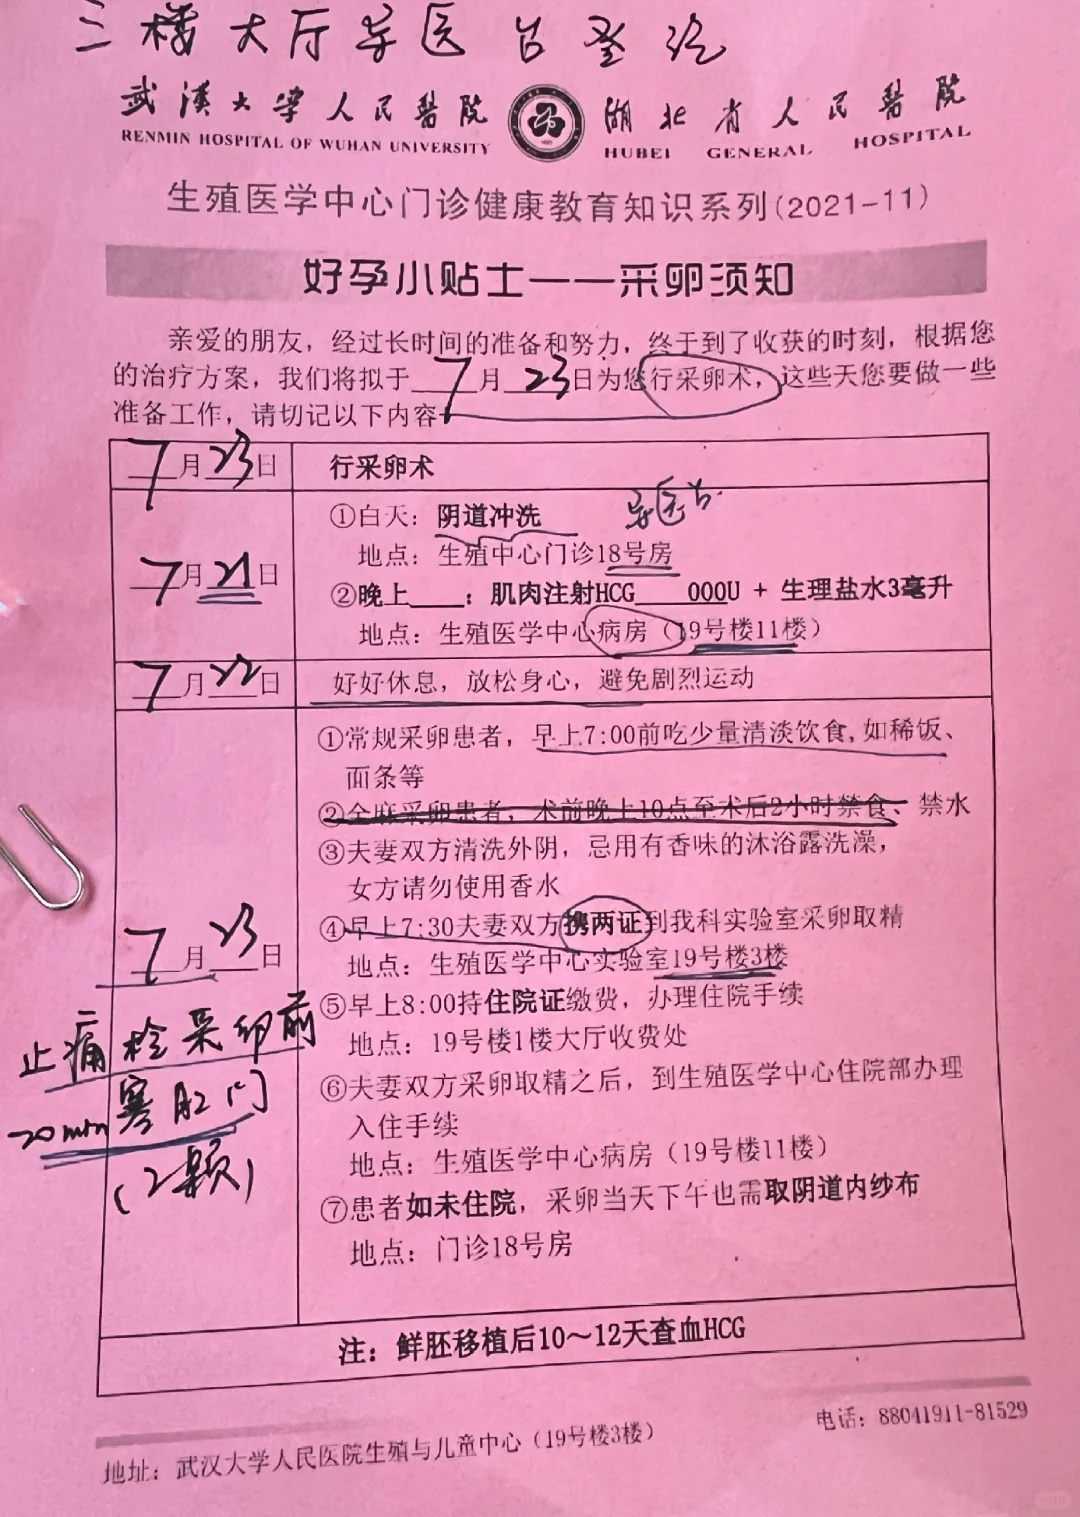 三楼大厅导医台登记
武漢大学人民醫院 湖北省人民醫院
RENMIN HOSPITAL OF WUHAN UNIVERSITY HUBEI GENERAL HOSPITAL
生殖医学中心门诊健康教育知识系列(2021-11)
好孕小贴士——采卵须知
亲爱的朋友，经过长时间的准备和努力，终于到了收获的时刻，根据您
的治疗方案，我们将拟于 7 月 23 日为您行采卵术，这些天您要做一些
准备工作，请切记以下内容
7 月 23 日 行采卵术
①白天：阴道冲洗 导医台
地点：生殖中心门诊18号房
7 月 21 日
②晚上____：肌肉注射HCG____000U + 生理盐水3毫升
地点：生殖医学中心病房（19号楼11楼）
7 月 22 日 好好休息，放松身心，避免剧烈运动
①常规采卵患者，早上7:00前吃少量清淡饮食,如稀饭、
面条等
②全麻采卵患者，术前晚上10点至术后2小时禁食、禁水
③夫妻双方清洗外阴，忌用有香味的沐浴露洗澡，
女方请勿使用香水
④早上7:30夫妻双方携两证到我科实验室采卵取精
7 月 23 日
地点：生殖医学中心实验室19号楼3楼
⑤早上8:00持住院证缴费，办理住院手续
地点：19号楼1楼大厅收费处
止痛栓采卵前
20min塞肛门
(2颗)
⑥夫妻双方采卵取精之后，到生殖医学中心住院部办理
入住手续
地点：生殖医学中心病房（19号楼11楼）
⑦患者如未住院，采卵当天下午也需取阴道内纱布
地点：门诊18号房
注：鲜胚移植后10～12天查血HCG
电话：88041911-81529
地址：武汉大学人民医院生殖与儿童中心（19号楼3楼）